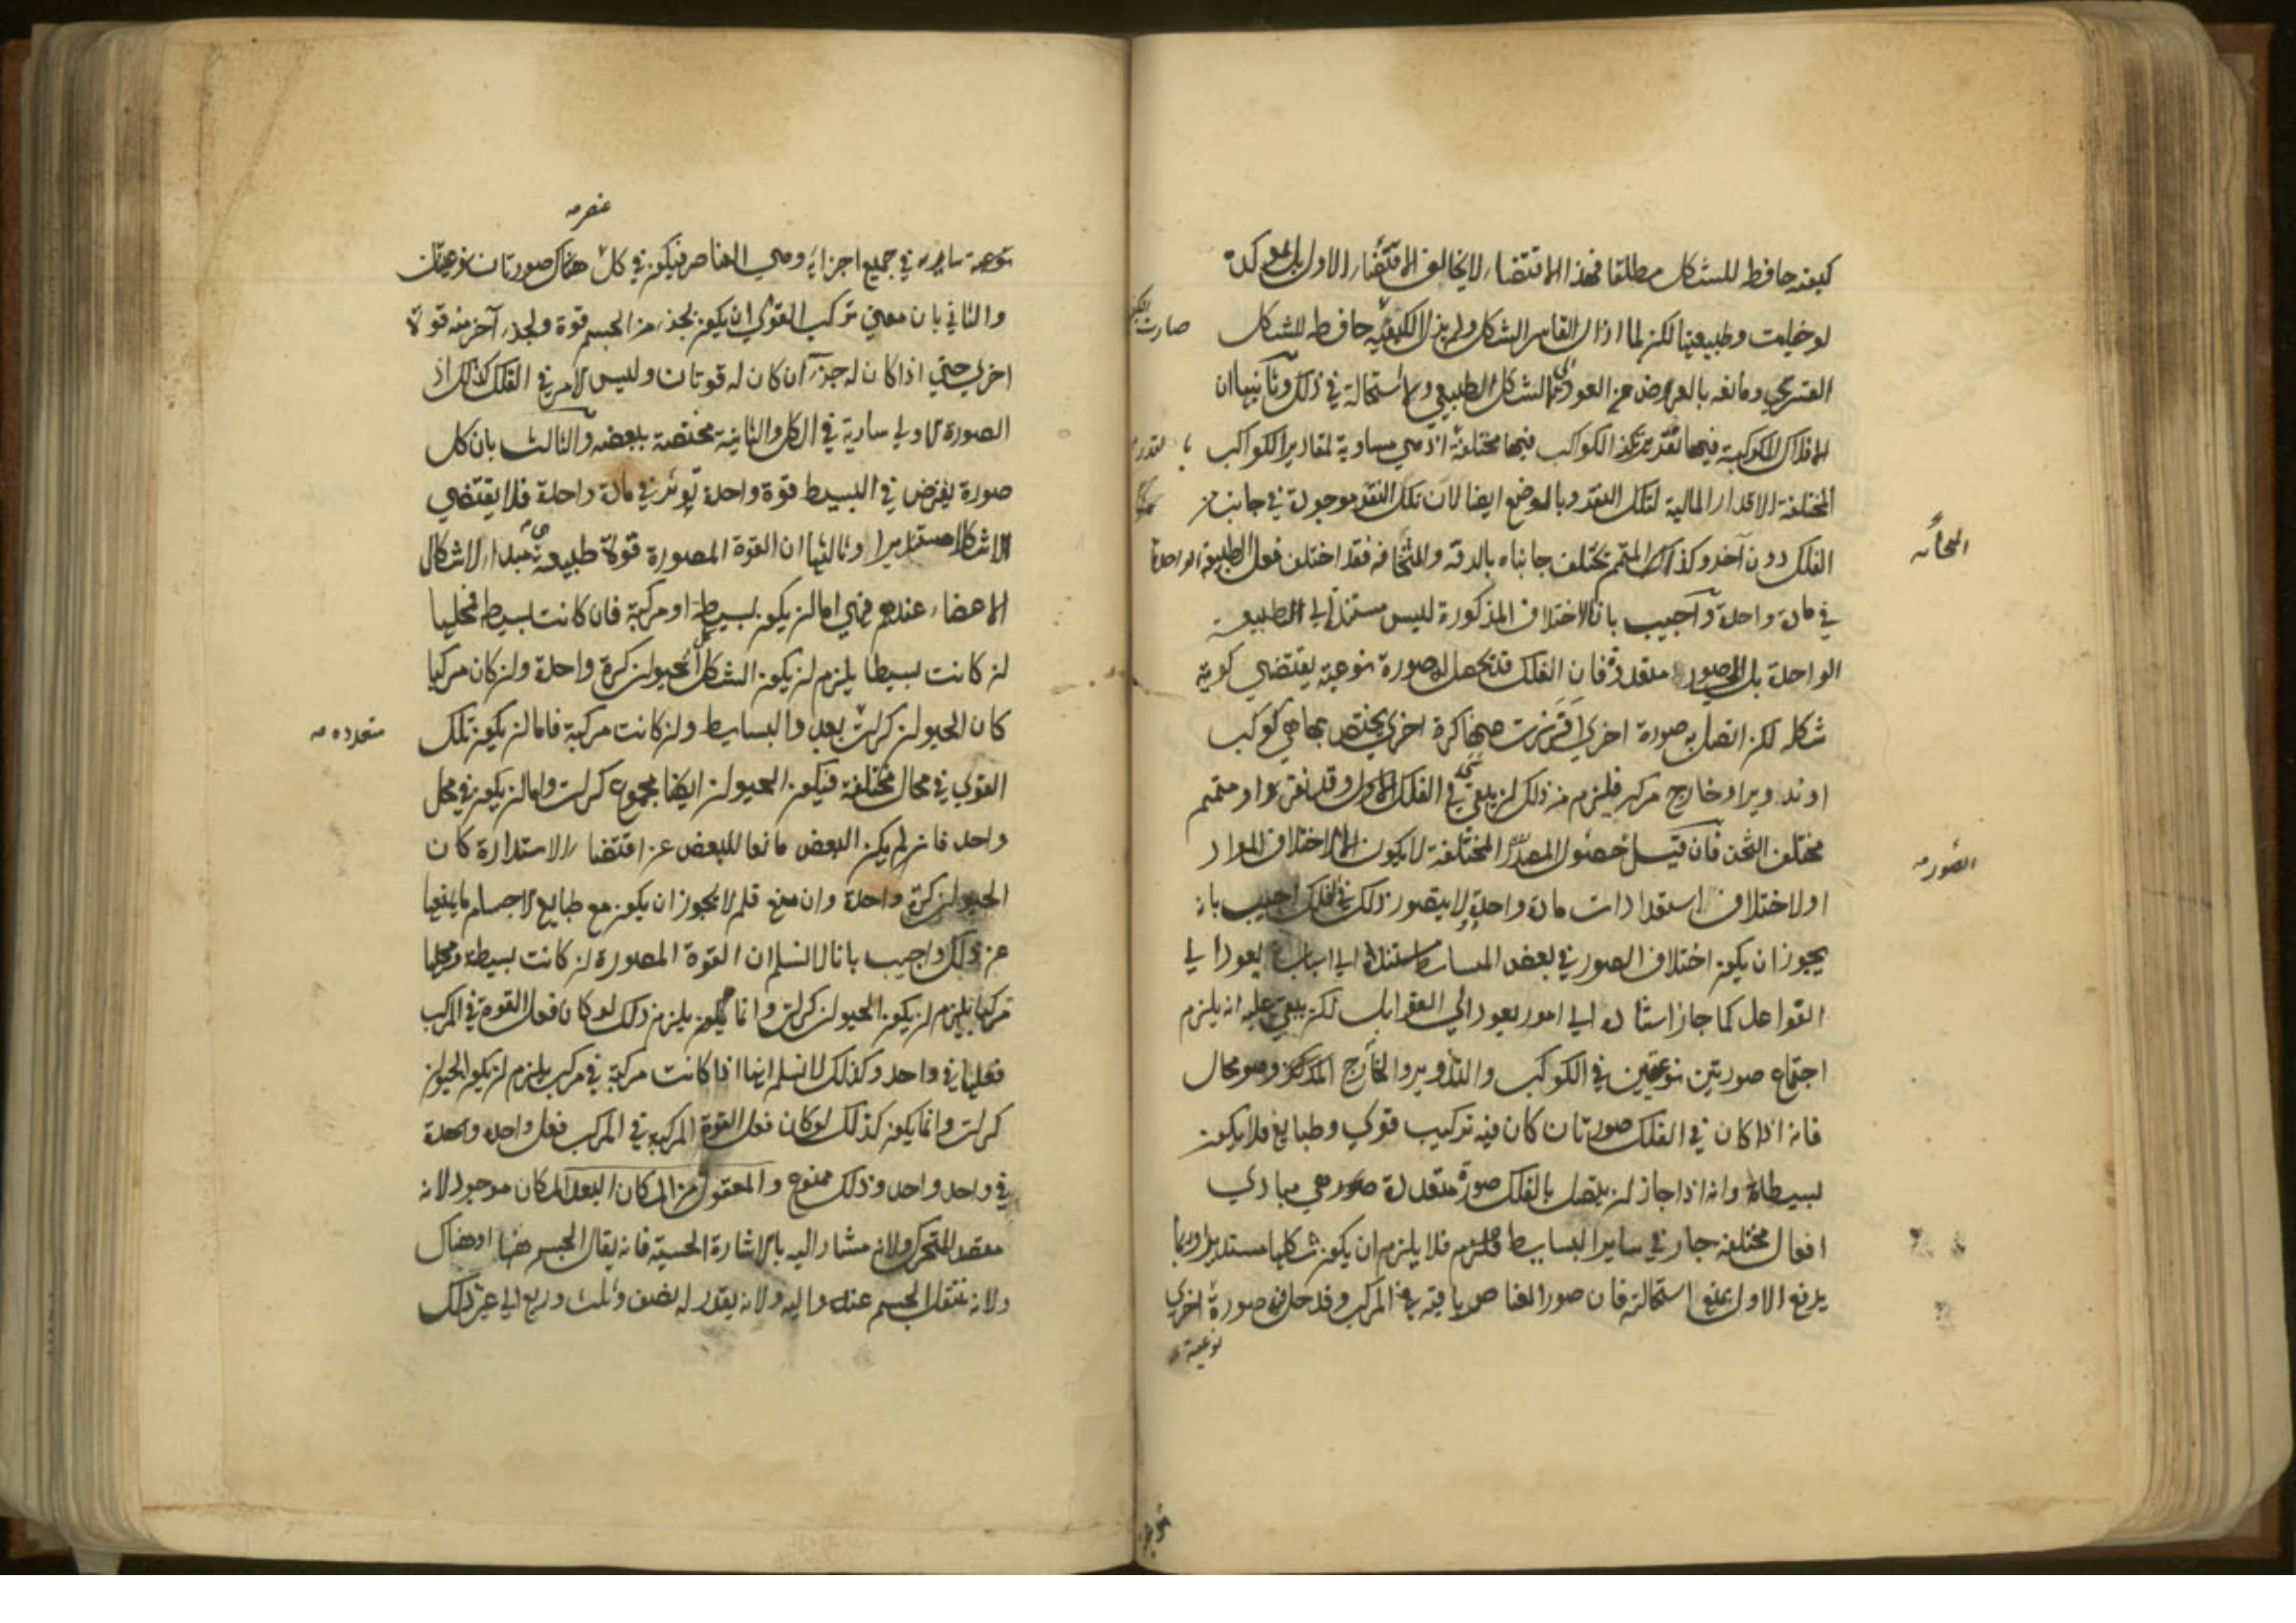 كيفية حافظه للشكل مطلقا فهذا الاقتضاء لا يخالف الاقتضاء الاول بل يؤكده
لو خليت وطبيعتها لكن لما ازال القاسر الشكل ولم يزل الكيفية حافظه للشكل
صارت
القسري ومانعه بالعرض عن العود الى الشكل الطبيعي ولا استحالة في ذلك وثانيها ان
الافلاك المكوكبة فيها نقر تتركز الكواكب فيها مختلفة اذ هي مساوية لمقادير الكواكب
المختلفة الاقدار المالية لتلك النقر وبالموضع ايضا لان تلك النقر موجودة في جانب من
الفلك دون آخر وكذلك المتمم يختلف جانباه بالدقة والثخانة فقد اختلف فعل الطبيعة الواحدة
في مادة واحدة واجيب بان الاختلاف المذكورة ليس مستندا الى الطبيعة
الواحدة بل الصور متعددة فان الفلك قد تحصل له صورة نوعية يقتضي كرية
شكله لكن اتصل به صورة اخرى افترزت منها كرة اخرى يختص بها هي كوكب
او تدوير او خارج مركز فيلزم من ذلك ان يبقى في الفلك الاول وقد نقرة او متمم
مختلف الثخن فان قيل حصول الصور المختلفة لا يكون الا لاختلاف المواد
الصور
او لاختلاف استعدادات مادة واحدة ولا يتصور ذلك في الفلك اجيب بانه
يجوز ان يكون اختلاف الصور في بعض المسائط مستندا الى اسباب يعود الى
الفواعل كما جاز استناده الى امور يعود الى القوابل لكن يبقى عليه انه يلزم
اجتماع صورتين نوعيتين في الكوكب والتدوير والخارج المركز وهو محال
فانه اذا كان في الفلك صورتان كان فيه تركيب قوى وطبايع فلا يكون
بسيطا وانه اذا جاز ان يتصل بالفلك صورة متعددة هي مبادي
افعال مختلفة جاز في ساير البسايط فلا يلزم ان يكون شكلها مستديرا وربما
يدفع الاول بمنع استحالته فان صور العناصر باقية في المركب وقد حل فيه صورة اخرى
نوعية
نوعية سارية في جميع اجزايه وهي العناصر فيكون في كل هناك صورتان نوعيتان
عنصر
والثاني بان معنى تركب القوى ان يكون لجزء من الجسم قوة ولجزء آخر منه قوة
اخرى حتى اذا كان له جزءان كان له قوتان وليس الامر في الفلك كذلك اذ
الصورة الاولى سارية في الكل والثانية مختصة ببعضه والثالث بان كل
صورة يفرض في البسيط قوة واحدة تؤثر في مادة واحدة فلا يقتضي
الا شكلا مستديرا وثالثها ان القوة المصورة قوة طبيعية هي مبدا لاشكال
الاعضاء عندهم فهي اما ان يكون بسيطة او مركبة فان كانت بسيطة فمحلها
ان كانت بسيطا يلزم ان يكون الشكل الحيوان كرة واحدة وان كان مركبا
كان الحيوان كرات بعدد البسايط وان كانت مركبة فاما ان يكون تلك
متعدده
القوى في محال مختلفة فيكون الحيوان ايضا مجموع كرات واما ان يكون في محل
واحد فان لم يكن البعض مانعا للبعض عن اقتضاء الاستدارة كان
الحيوان كرة واحدة وان منع فلم لا يجوز ان يكون مع طبايع الاجسام ما يمنعها
عن ذلك واجيب بانا لا نسلم ان القوة المصورة ان كانت بسيطة ومحلها
مركبا يلزم ان يكون الحيوان كرات وانما يكون يلزم ذلك لو كان فعل القوة في المركب
فعلها في واحد وكذلك لا نسلم انها اذا كانت مركبة في مركب يلزم ان يكون الحيوان
كرات وانما يكون كذلك لو كان فعل القوة المركبة في المركب فعل واحد واحدة
في واحد واحد وذلك ممنوع والمعقول من المكان البعد المكان موجود لانه
مقصد المتحرك ولانه مشار اليه بالاشارة الحسية فانه يقال الجسم هنا او هناك
ولانه ينتقل الجسم عنه واليه ولانه يقدر له نصف وثلث وربع الى غير ذلك